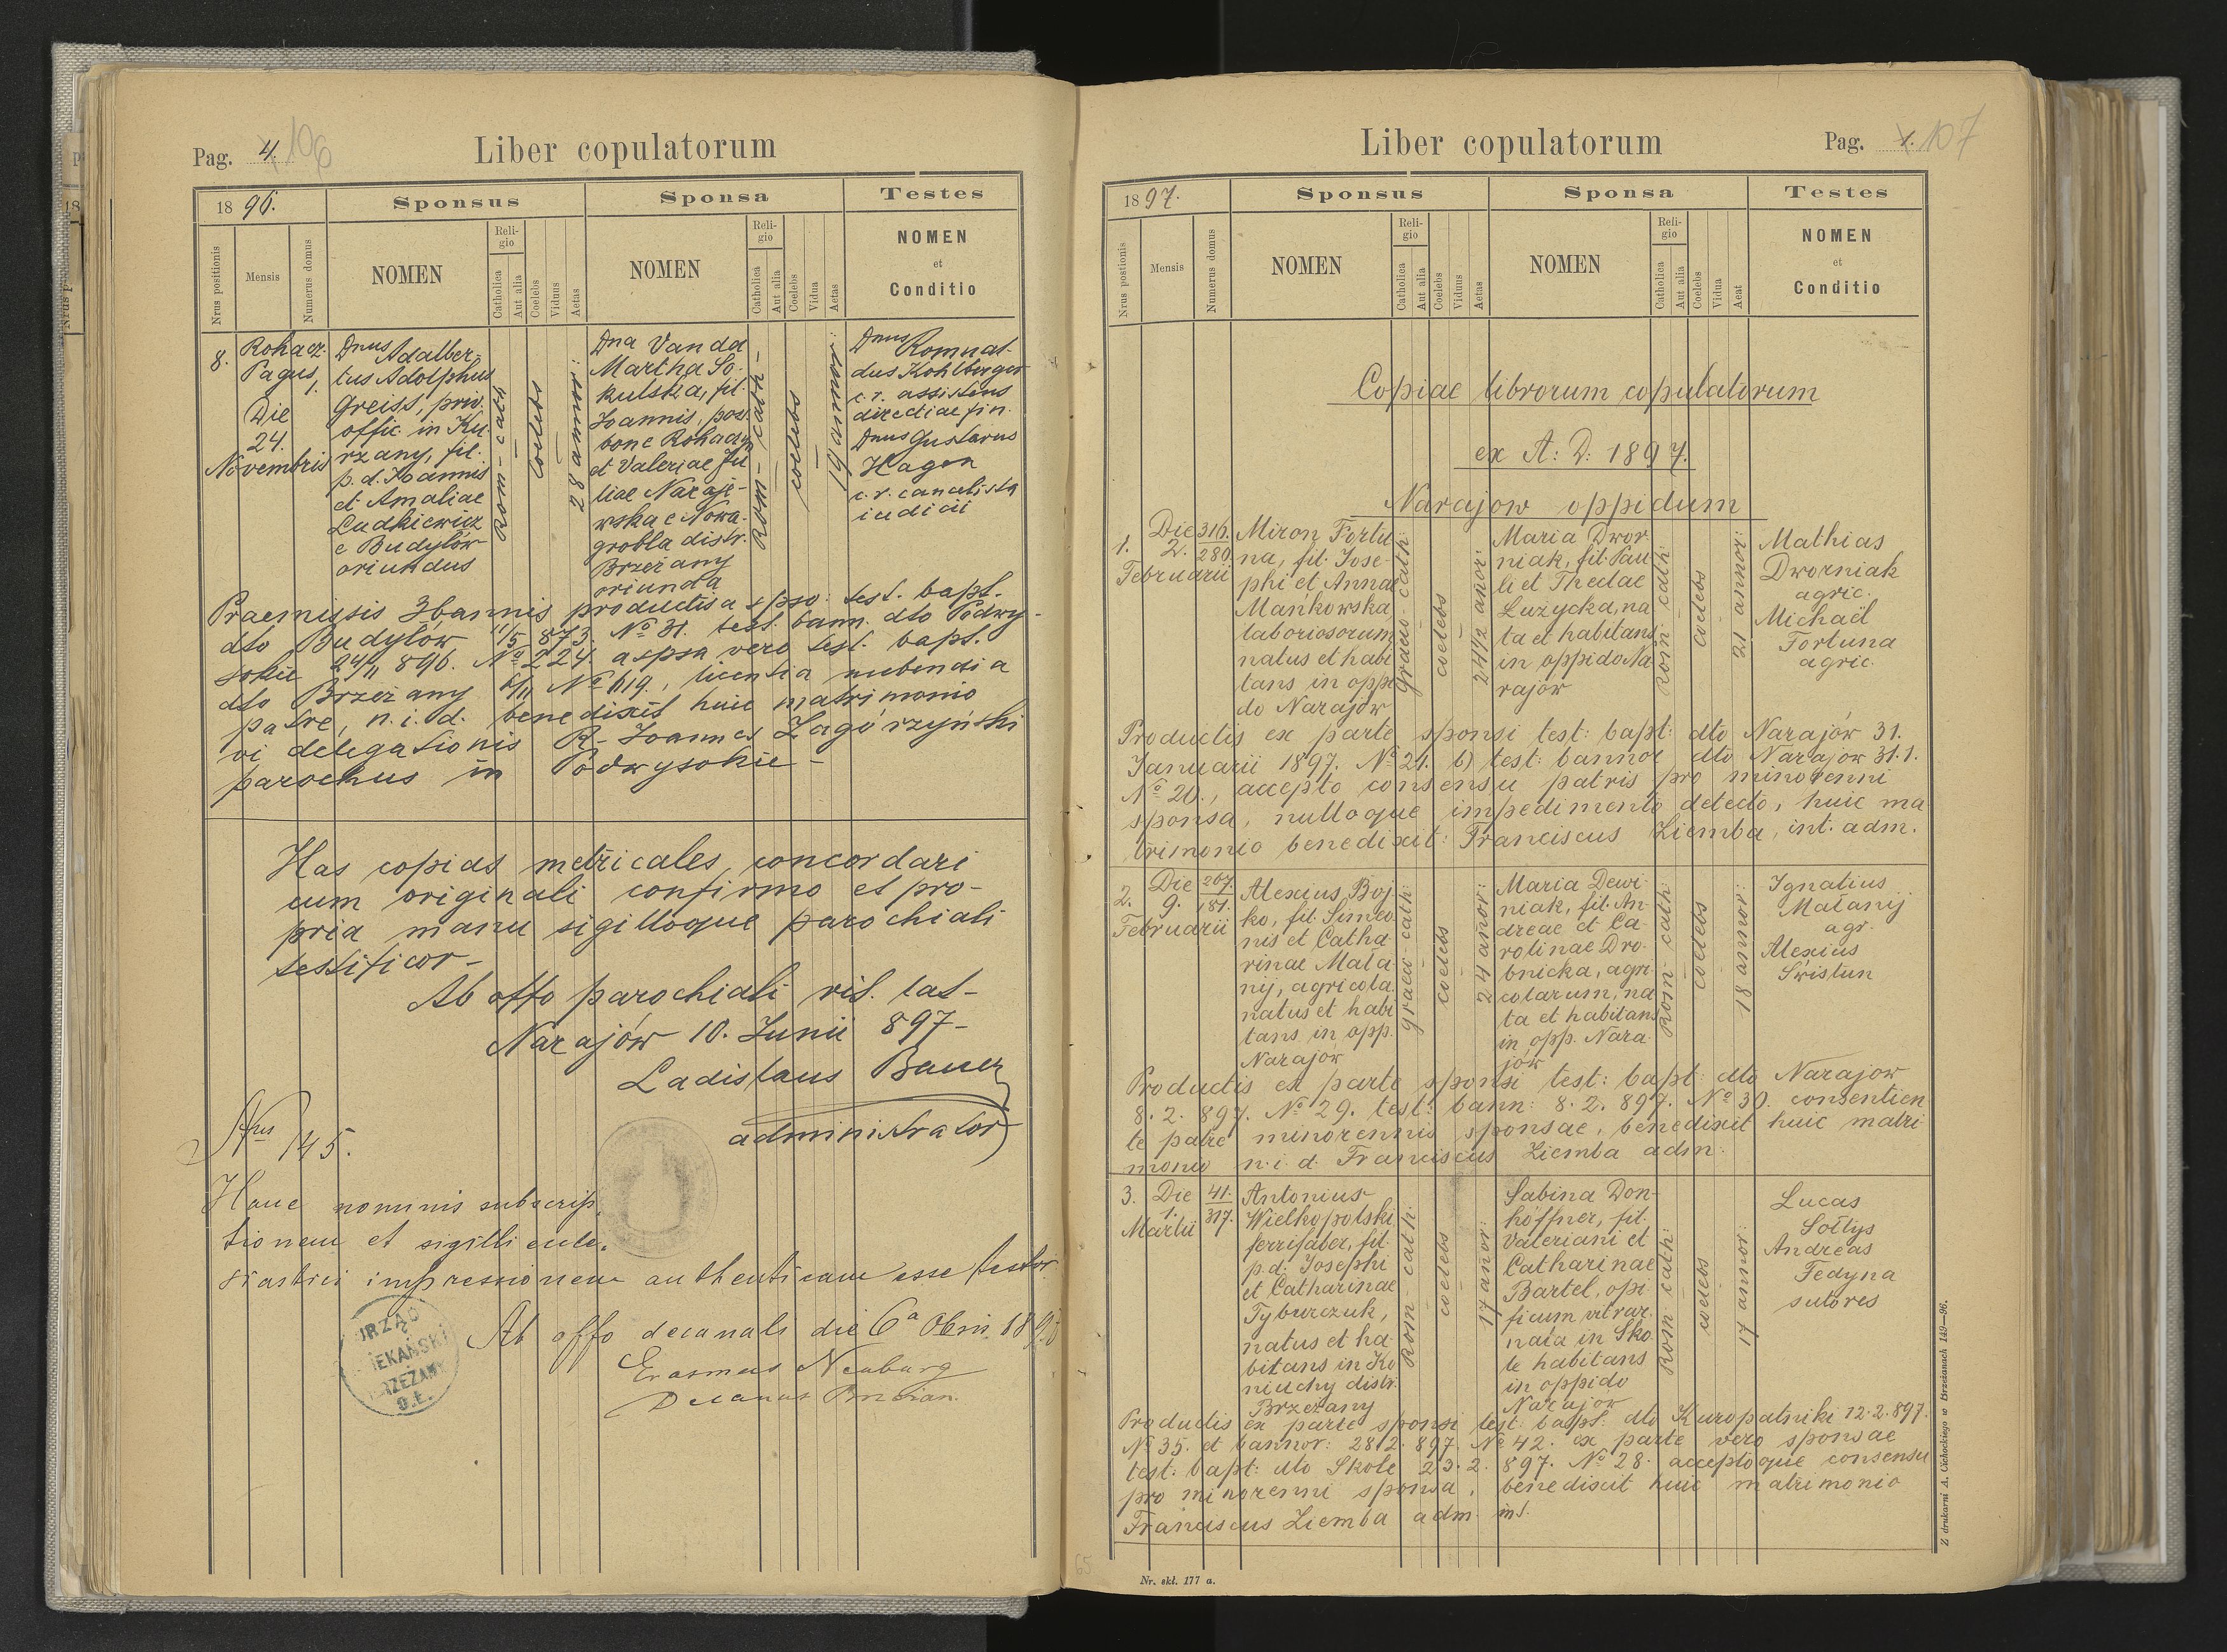 Pag. 4. 106
Liber copulatorum
1896.
Sponsus
Sponsa
Testes
Nrus positionis
Mensis
Numerus domus
NOMEN
Religio
Catholica
Aut alia
Coelebs
Viduus
Aetas
NOMEN
Religio
Catholica
Aut alia
Coelebs
Vidua
Aetas
NOMEN
et
Conditio
8.
Rohacz.
Pagus,
Die
24.
Novembris
Dnus Adalber-
tus Adolphus
Greiss, priv.
offic. in Ku-
rzany, fil.
p. d. Joannis
et Amaliae
Ludkiewicz
e Budyłów
oriundus
Rom-cath
coelebs
28 annor:
Dna Vanda
Martha So-
kulska, fil.
Joannis, pos.
bone Rohaczyn
et Valeriae Ju-
liae Naraje-
wska e Nowa-
grobla distr.
Brzeżany
oriunda
Rom-cath-
coelebs
19 annor:
Dnus Romual-
dus Kohlberger
c. r. assistens
directiae fin.
Dnus Gustavus
Hagen
c. r. cancelista
iudicii
Praemissis 3 bannis productis a spso: test. bapt.
dto Budyłów 11/5 873. No 31. test. bann. dto Podwy-
sokie 24/11 896. No 224. a spsa vero test. bapt.
dto Brzeżany 6/11 No 619., licentia nubendi a
patre, n. i. d. benedixit huic matrimonio
vi delegationis R. Joannes Zagórzyński
parochus in Podwysokie-
Has copias metricales, concordari
cum originali confirmo et pro-
pria manu sigilloque parochiali
testificor-
Ab offo parochiali rit. lat-
Narajów 10. Junii 897-
Ladislaus Bauer
administrator
Nrus 145.
Hanc nominis subscrip-
tionem et sigilli eccle-
siastici impressionem authenticam esse testor
Ab offo decanali die 6a 8bris 1898
Erasmus Neuburg
Decanus Brzeżan.
URZĄD
DZIEKAŃSKI
BRZEŻANY
O.Ł.
Liber copulatorum
Pag. 1. 107
1897.
Sponsus
Sponsa
Testes
Nrus postionis
Mensis
Numerus domus
NOMEN
Religio
Catholica
Aut alia
Coelebs
Viduus
Aetas
NOMEN
Religio
Catholica
Aut alia
Coelebs
Vidua
Aeat
NOMEN
et
Conditio
Copiae librorum copulatorum
ex A: D: 1897.
Narajow oppidum
1.
Die
2.
Februarii
316.
280.
Miron Fortu
na, fil. Jose-
phi et Annae
Mańkowska
laboriosorum
natus et habi
tans in oppi
do Narajów
graeco cath:
coelebs
24 1/2 anor:
Maria Dwor
niak, fil. Pau
li et Theclae
Luzycka, na
ta et habitans
in oppido Na
rajów
Rom cath:
coelebs
21 annor:
Mathias
Dworniak
agric.
Michaël
Fortuna
agric.
Productis ex parte sponsi test: bapt: dto Narajów 31.
Januarii 1897. No 21. b) test: bannor dto Narajow 31.1.
No 20., accepto consensu patris pro minorenni
sponsa, nulloque impedimento detecto, huic ma
trimonio benedixit: Franciscus Ziemba, int. adm.
2.
Die
9.
Februarii
267.
181.
Alexius Boj
ko, fil. Simeo
nis et Catha
rinae Mała
nij, agricola
natus et habi
tans in opp.
Narajów
graeci cath:
coelebs
24 annor:
Maria Dewi-
niak, fil. An-
dreae et Ca-
rolinae Dro-
bnicka, agri
colarum, na
ta et habitans
in opp. Nara
jów
Rom cath
coelebs
18 annor:
Ignatius
Małanij
agr.
Alexius
Świstun
Productis ex parte sponsi test: bapt: dto Narajow
8. 2. 897. No 29. test: bann: 8. 2. 897. No 30. consentien
te patre minorennis sponsae, benedixit huic matri
monio n. i. d. Franciscus Ziemba adm.
3.
Die
1.
Martii
41.
317.
Antonius
Wielkopolski
ferrifaber, fil.
p. d. Josephi
et Catharinae
Tyburczuk,
natus et ha-
bitans in Ko
niuchy distr.
Brzeżany
Rom cath:
coelebs
17 anor:
Sabina Don-
höffner, fil.
Valeriani et
Catharinae
Bartel, opi
ficum vitrar.
nata in Sko
le habitans
in oppido
Narajow
Rom cath:
coelebs
17 annor:
Lucas
Sołtys
Andreas
Fedyna
sutores
Productis ex parte sponsi test: bapt: dto Kuropatniki 12. 2. 897.
No 35. et bannor: 28/2. 897. No 42. ex parte vero sponsae
test: bapt: dto Skole 23. 2. 897. No 28. acceptoque consensu
pro minorenni sponsa, benedixit huic matrimonio
Franciscus Ziemba adm. int.
Nr. skł. 177 a.
Z drukarni A. Cichockiego w Brzeżanach 149—96.
65